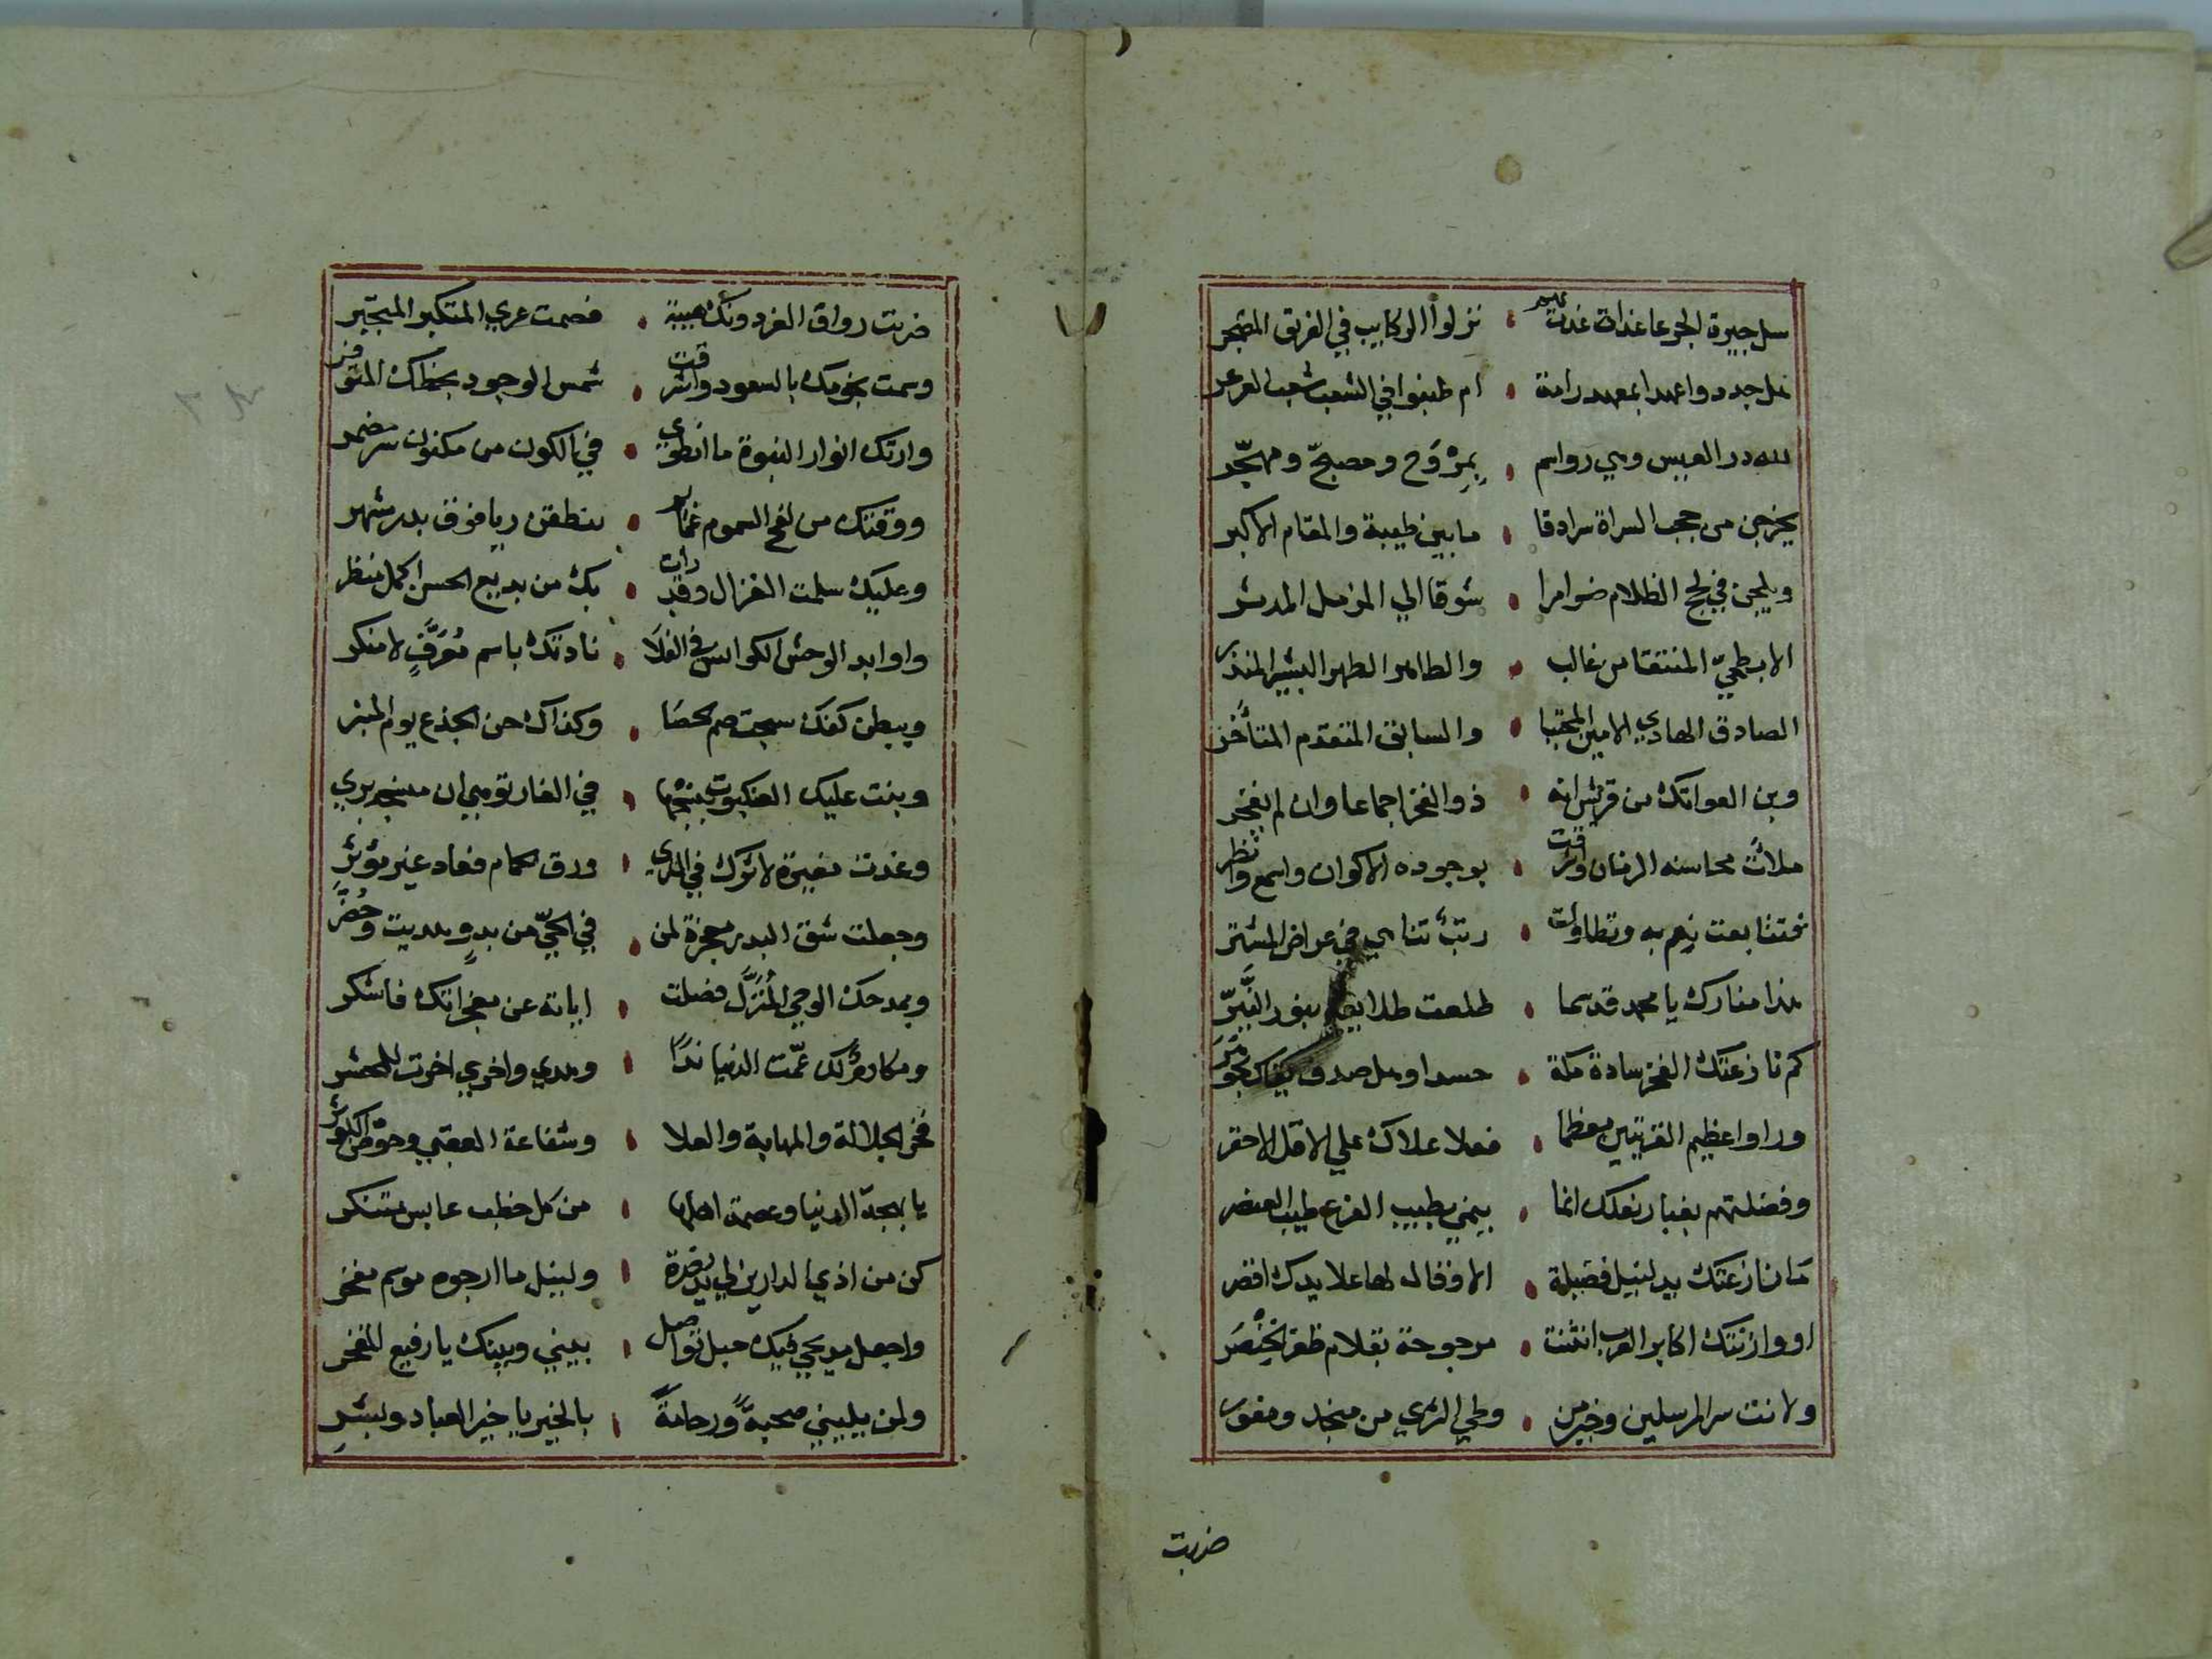 سل جيرة الجرعا غداة غدت بهم • نزلوا الركايب في الفريق المتهجر
هل جددوا عهدا بمعهد رامة • ام طنبوا في الشعب شعب العرعر
لله در العيس وهي رواسم • بمروّح ومصبحّ ومهجّر
يخرجن من حجب السراة سرادقا • ما بين طيبة والمقام الاكبر
ويلجن في لجج الظلام ضوامرا • شوقا الي المزمل المدثر
الابطحيّ المنتقا من غالب • والطاهر الطهر البشير المنذر
الصادق الهادي الامين المجتبا • والسابق المتقدم المتأخر
وبن العواتك من قريش انه • ذو الفخر اجماعا وان لم يفخر
ملأت محاسنه الزمان واشرقت • بوجوده الاكوان واسمع وانظر
فتتابعت نعم به وتطاولت • رتبٌ تناهي في عراض المشتر
هذا منارك يا محمد قد سما • طلعت طلايعه بنور النّيّر
كم نازعتك الفخر سادة مكة • حسدا وهل صدف يقاس بجوهر
وراوا عظيم القريتين معظما • فعلا علاك علي الاقل الاحقر
وفضلتهم بغبار نعلك انما • ينمي بطيب الفرع طيب العنصر
ما نازعتك يد لنيل فضيلة • الا وقال لها علا يدك اقصر
او وازنتك اكابر العرب انثنت • مرجوحة بقلام ظفر الخنصر
ولانت سر المرسلين وخير من • وطي الثري من منجد ومغور
ضربت
ضربت رواق العز دونك هيبة • فصمت عري المتكبر المتجبر
وسمت نجومك بالسعود واشرقت • شمس الوجود بحظك المتوفر
وارتك انوار النبوة ما انطوي • في الكون من مكنون سر مضمر
ووقتك من لفح السموم غمامة
وعليك سلمت الغزال وقد رات • بك من بديع الحسن اكمل منظر
واوابد الوحش الكوانس في الفلا • نادتك باسم معرّفٍ لا منكر
وببطن كفك سبحت صم الحصا • وكذاك حن الجذع يوم المنبر
وبنت عليك العنكبوت بنسجها
وغدت مغيرة لاثرك في الثري • ورق الحمام فعاد غير مؤثر
وجعلت شق البدر معجزة لمن • في الحيّ من بدو هديت وحضر
وبمدحك الوحي المنزّل فصلت • اياته عن معجزاتك فاشكر
ومكارم لك عمّت الدنيا ندا • وهدي واخري اخرت للمحشر
فخر الجلالة والمهابة والعلا • وشفاعة العقبي وحوض الكوثر
يا بهجة الدنيا وعصمة اهلها • من كل خطب عابس متنكر
كن من اذي الدارين لي يد نصرة • ولنيل ما ارجوه موسم مفخر
واجعل مديحي فيك حبل تواصل • بيني وبينك يا رفيع المفخر
ولمن يليني صحبةً ورحامةً • بالخير يا خير العباد وبشر